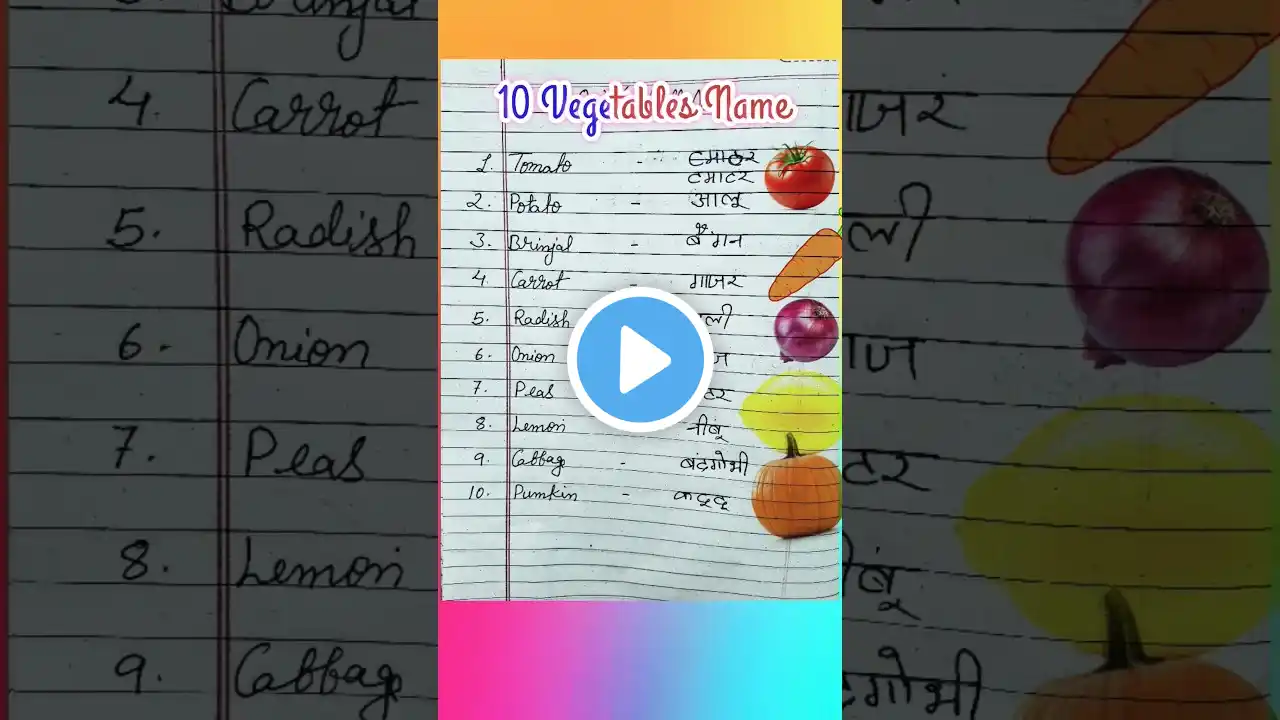 4. Carrot
5. Radish
6. Onion
7. Peas
8. Lemon
9. Cabbag
10 Vegetables Name
1. Tomato -
टमाटर
2. Potato - आलू
3. Brinjal - बैंगन
4. Carrot - गाजर
5. Radish ली
6. Onion ज
7. Peas टर
8. Lemon नीबू
9. Cabbag - बंदगोभी
10. Pumkin - कदूदू
ाजर
ली
ाज
टर
गोभी